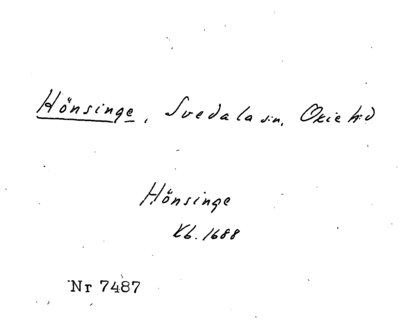 Hönsinge, Svedala sn, Oxie hd
Hönsinge
Kb. 1688
Nr 7487